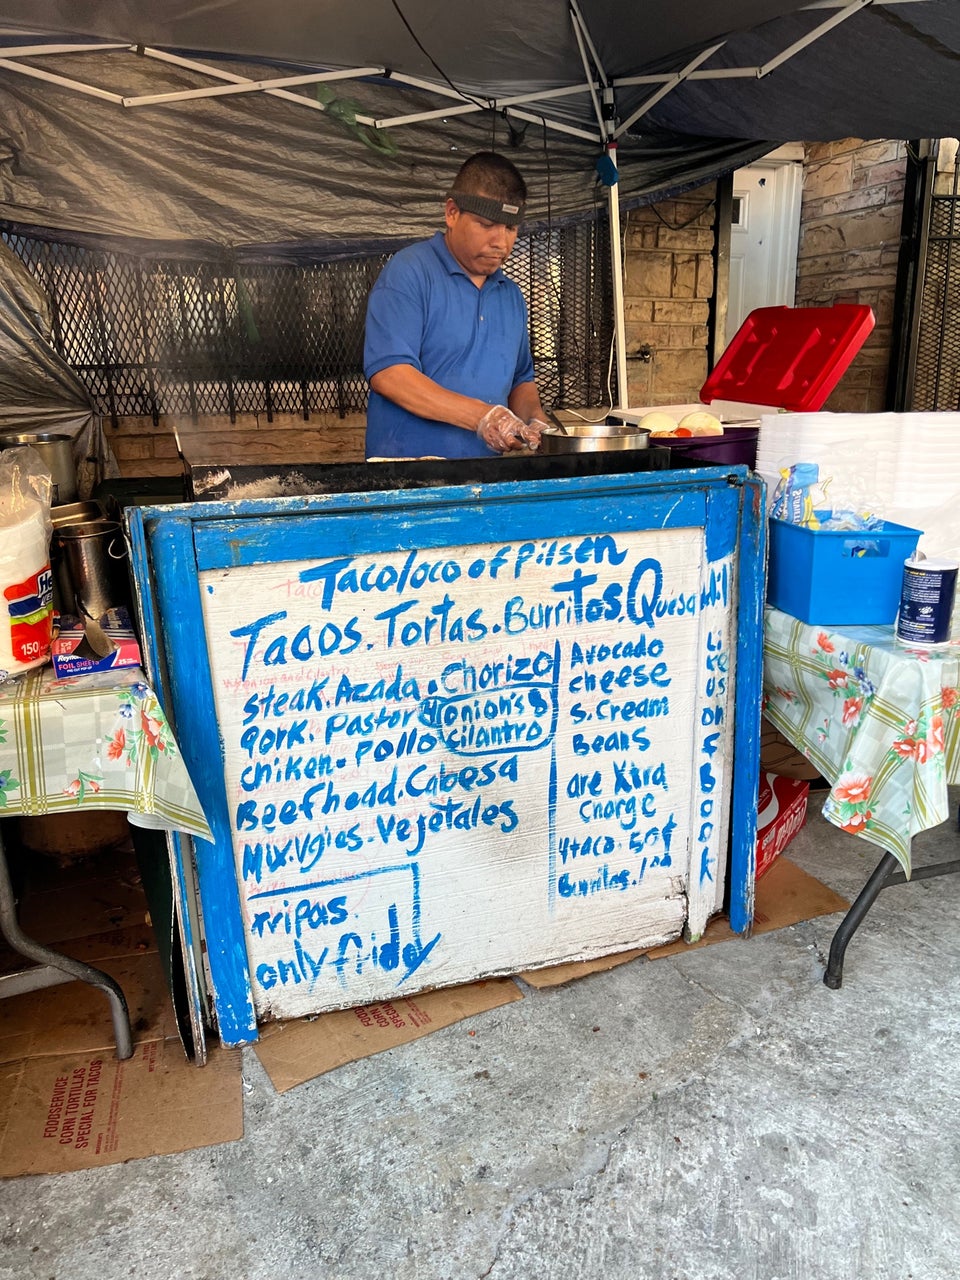 Tacoloco of Pilsen
Tacos. Tortas. Burritos. Quesadill
steak. Azada. Chorizo
pork. Pastor
onion's &
cilantro
chiken. Pollo
Beefhead. Cabesa
Mix. Vgies. Vejetales
Tripas.
only friday
Avocado
cheese
s. Cream
Beans
are Xtra
Charge
4 taco. 50¢
Burritos. 1.00
Like us on f Book
150
Reynolds
FOIL SHEETS
FOODSERVICE
CORN TORTILLAS
SPECIAL FOR TACOS
FOODSERVICE
CORN
SPECIAL